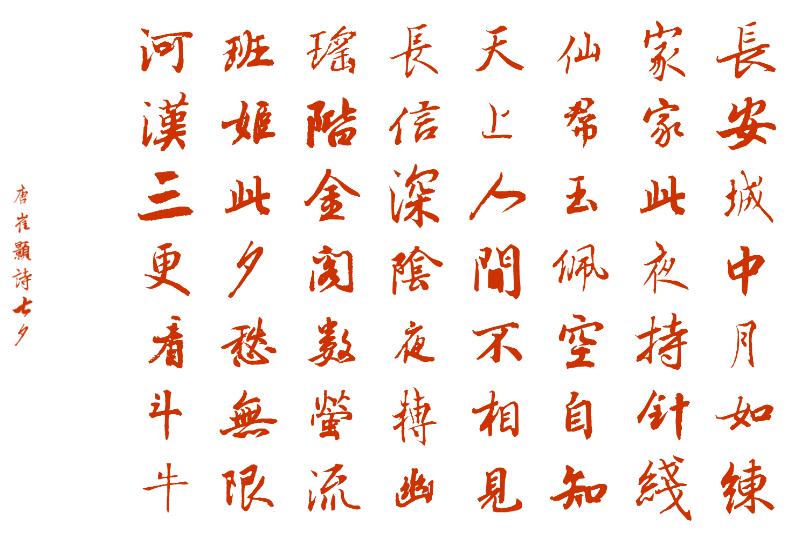 長安城中月如練
家家此夜持針綫
仙帬玉佩空自知
天上人間不相見
長信深陰夜轉幽
瑤階金閣数螢流
班姬此夕愁無限
河漢三更看斗牛
唐崔顥詩七夕